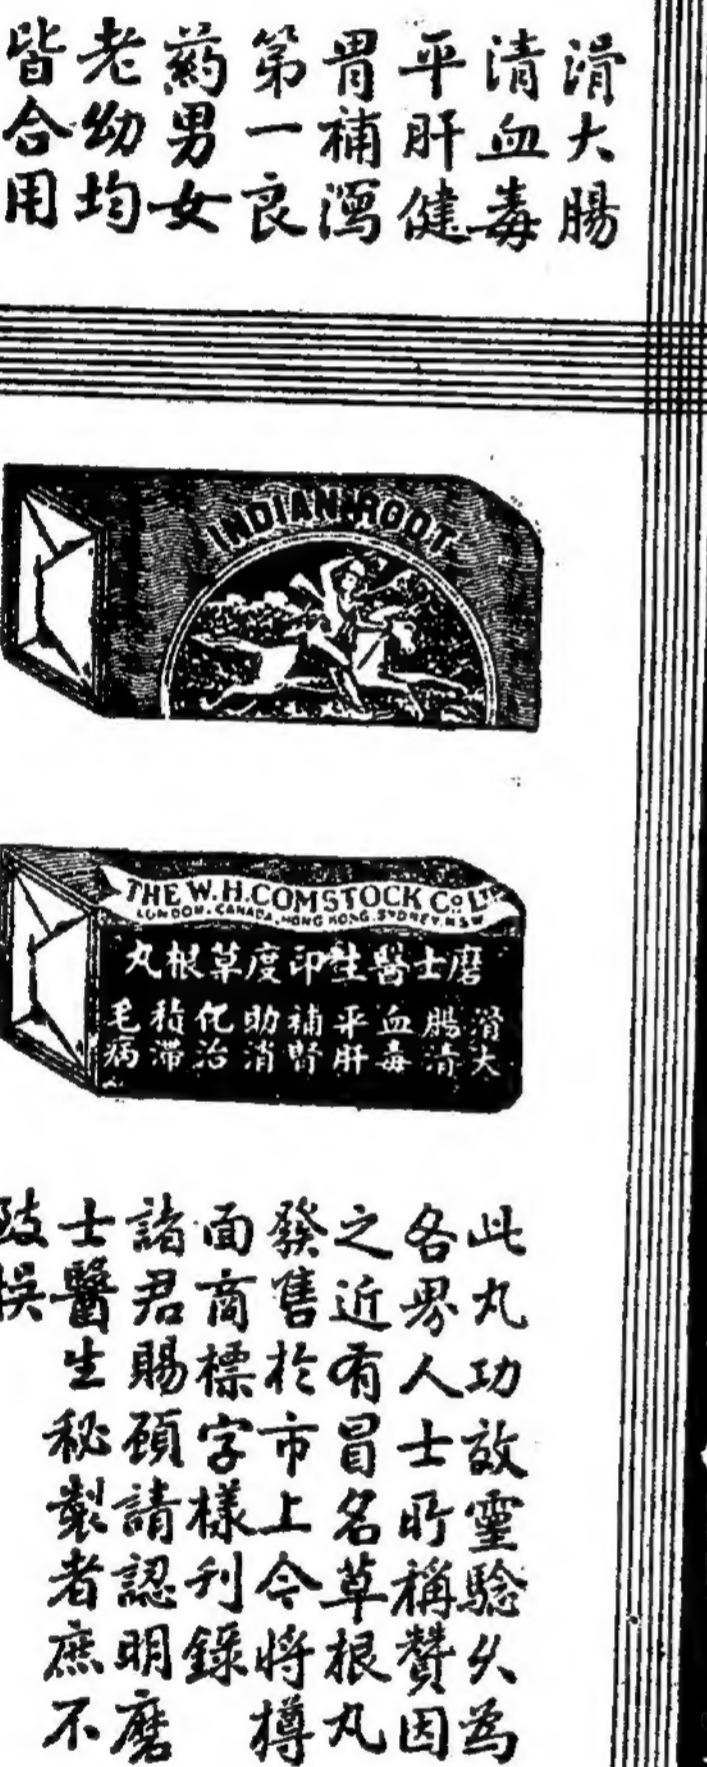 滑大腸
清血毒
平肝健
胃補瀉
第一良
藥男女
老幼均
皆合用
INDIAN ROOT
THE W.H.COMSTOCK Co LTD
LONDON. CANADA. HONG KONG. SYDNEY. N S W
磨士醫生印度草根丸
滑大
腸清
血毒
平肝
補腎
助消
化治
積滯
毛病
此丸功效靈驗久為
各界人士所稱贊因
之近有冒名草根丸
發售於市上今將樽
面商標字樣刊錄
諸君賜顧請認明磨
士醫生秘製者庶不
致悞